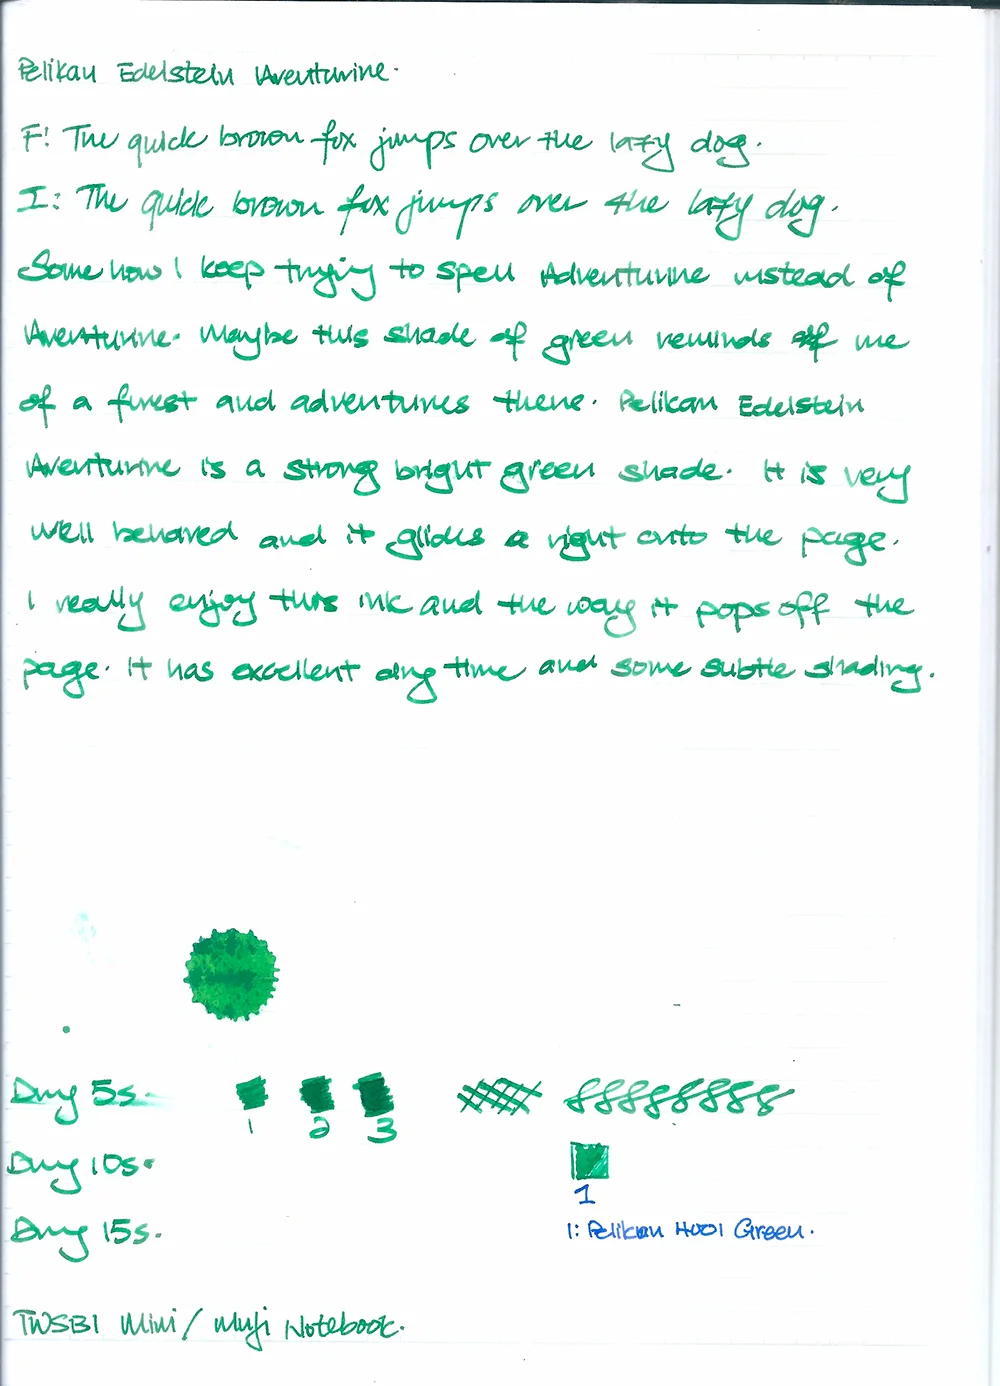 Pelikan Edelstein Aventurine.
F: The quick brown fox jumps over the lazy dog.
I: The quick brown fox jumps over the lazy dog.
Somehow I keep trying to spell Adventurine instead of
Aventurine. Maybe this shade of green reminds of me
of a forest and adventures there. Pelikan Edelstein
Aventurine is a strong bright green shade. It is very
well behaved and it glides a right onto the page.
I really enjoy this ink and the way it pops off the
page. It has excellent dry time and some subtle shading.
Dry 5s.
1 2 3
Dry 10s.
1
Dry 15s.
1: Pelikan 4001 Green.
TWSBI Mini / Muji Notebook.